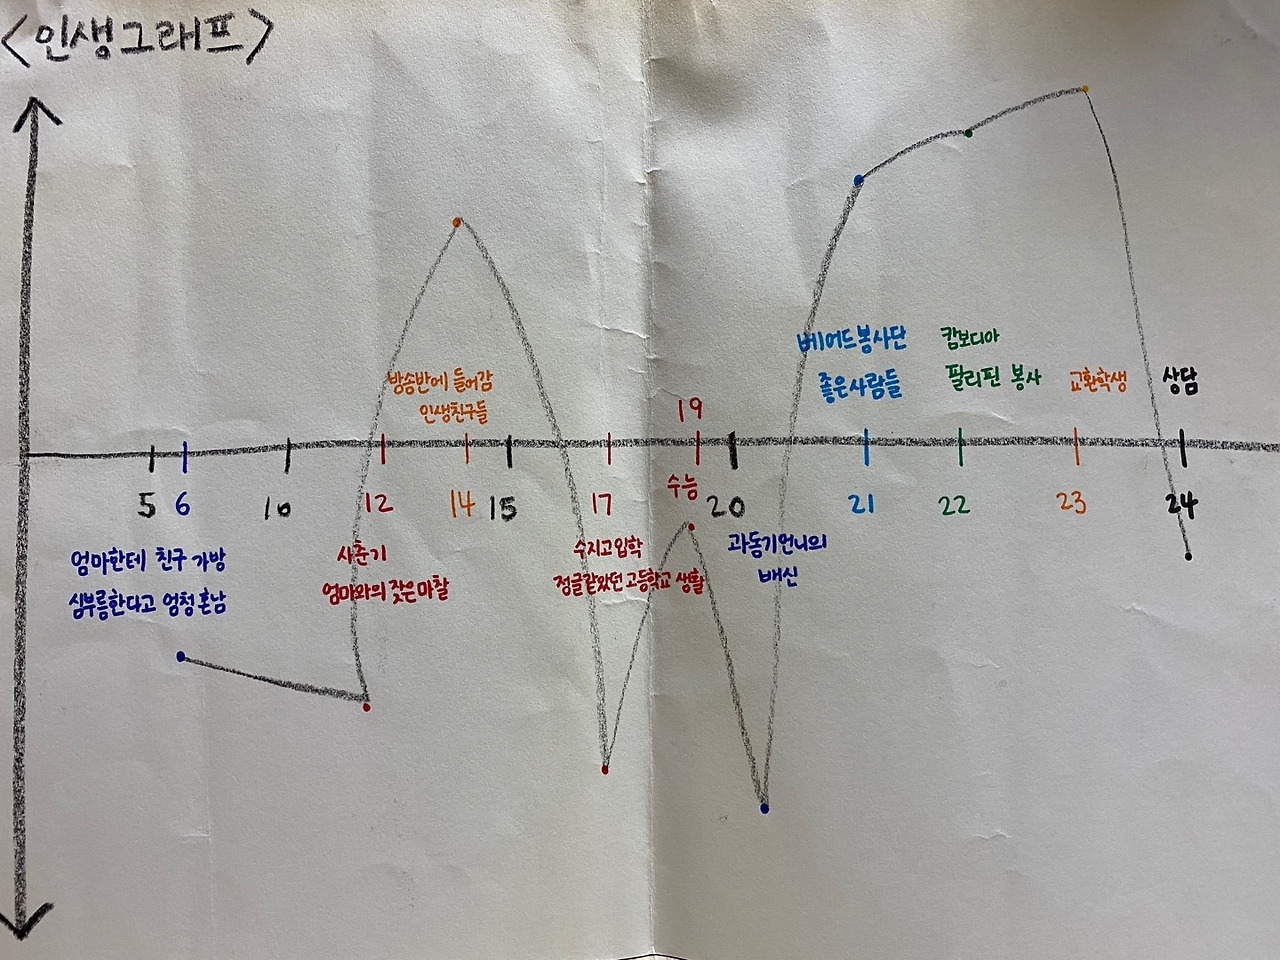 <인생그래프>
베어드봉사단
좋은사람들
캄보디아
필리핀 봉사
교환학생
상담
방송반에 들어감
인생친구들
19
수능
5
6
10
12
14
15
17
20
21
22
23
24
엄마한테 친구 가방
심부름한다고 엄청 혼남
사춘기
엄마와의 잦은 마찰
수지고 입학
정글같았던 고등학교 생활
과동기언니의
배신